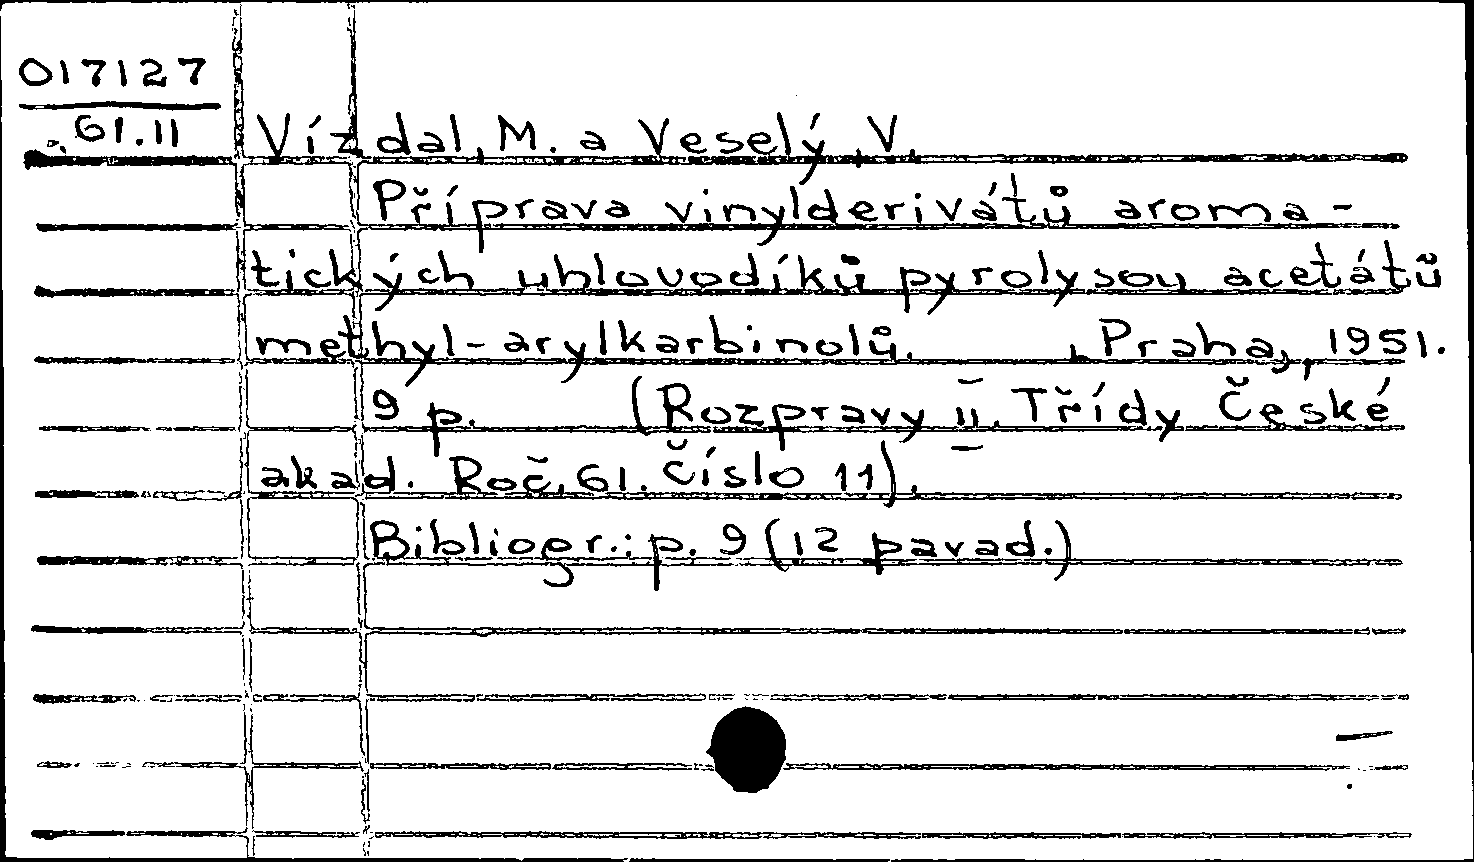 017127
61.11
Vízdal, M. a Veselý, V.
Příprava vinylderivátů aroma-
tických uhlovodíků pyrolysou acetátů
methyl-arylkarbinolů. Praha, 1951.
9 p. (Rozpravy II. Třídy České
akad. Roč. 61. Číslo 11).
Bibliogr.: p. 9 (12 pavad.)